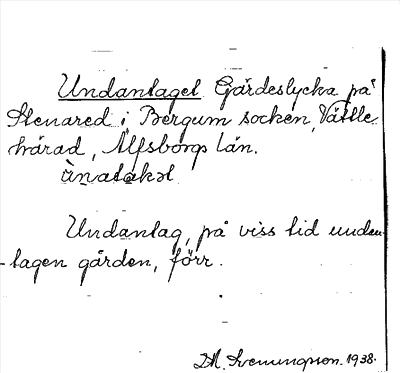 Undantaget Gärdeslycka på
Stenared i Bergum socken, Vättle
härad, Älfsborgs län.
ùnatakət
Undantag, på viss tid undan-
tagen gården, förr.
D.A. Sveningson. 1938.